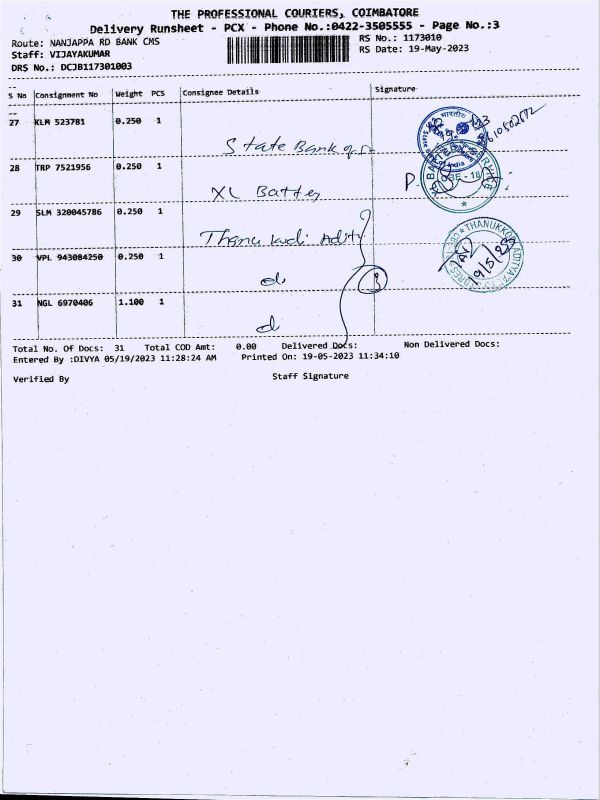 THE PROFESSIONAL COURIERS, COIMBATORE
Delivery Runsheet - PCX - Phone No.:0422-3505555 - Page No.:3
Route: NANJAPPA RD BANK CMS
RS No.: 1173010
Staff: VIJAYAKUMAR
RS Date: 19-May-2023
DRS No.: DCJB117301003
S No Consignment No Weight PCS Consignee Details Signature
27 KLM 523781 0.250 1
State Bank of
28 TRP 7521956 0.250 1
XL Battery
29 SLM 320045786 0.250 1
30 VPL 943084250 0.250 1
31 NGL 6970406 1.100 1
Total No. Of Docs: 31 Total COD Amt: 0.00 Delivered Docs: Non Delivered Docs:
Entered By :DIVYA 05/19/2023 11:28:24 AM Printed On: 19-05-2023 11:34:10
Verified By Staff Signature